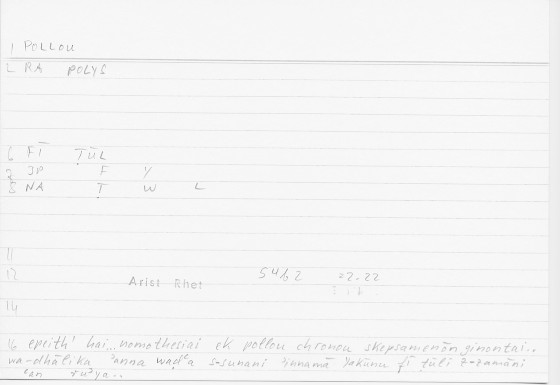 1 POLLOU
2 RA POLYS
6 FĪ ṬŪL
7 JP F Y
8 NA Ṭ W L
11
12 Arist Rhet 54b2 22.22
14
16 epeith' hai...nomothesiai ek pollou chronou skepsamenōn ginontai..
wa-dhālika ʾanna waḍʿa s-sunani ʾinnamā yakūnu fī ṭūli z-zamāni
ʿan ruʾya..